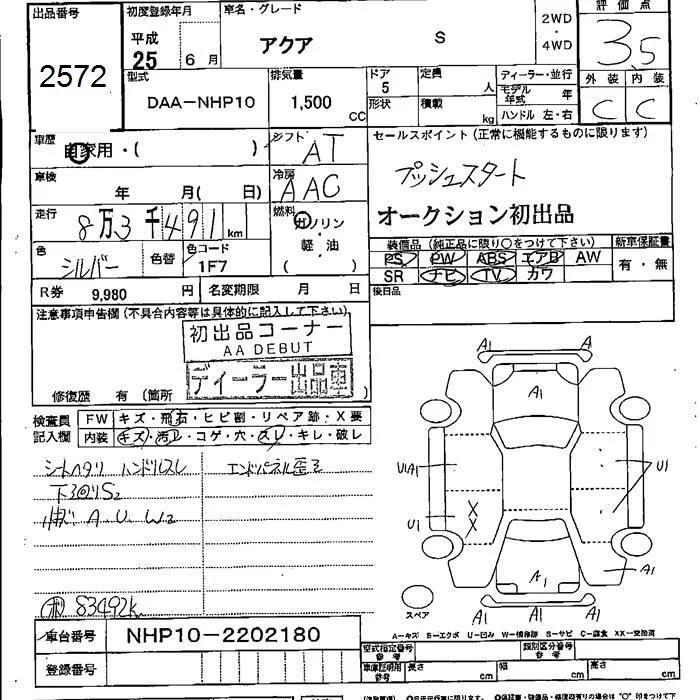 出品番号
2572
初度登録年月
平成
25
6 月
車名・グレード
アクア S
2WD
・
4WD
評価点
3.5
外装 内装
C C
型式
DAA-NHP10
排気量
1,500
CC
ドア
5
形状
定員
人
積載
kg
ディーラー・並行
モデル年式 年
ハンドル 左・右
車歴
自家用・( )
シフト
AT
車検
年 月( 日)
冷房
AAC
走行
8万3千491km
燃料
ガソリン
・
軽・油
( )
色
シルバー
色替
色コード
1F7
R券 9,980 円
名変期限 月 日
セールスポイント(正常に機能するものに限ります)
プッシュスタート
オークション初出品
装備品(純正品に限り○をつけて下さい)
新車保証書
PS PW ABS エアB AW
有・無
SR ナビ TV カワ
後日品
注意事項申告欄(不具合内容等は具体的に記入して下さい)
初出品コーナー
AA DEBUT
ディーラー出品車
修復歴 有(箇所 )
検査員
記入欄
FW キズ・飛石・ヒビ割・リペア跡・X要
内装 キズ・汚レ・コゲ・穴・スレ・キレ・破レ
シートヘタリ ハンドルスレ
エンドパネル歪ミ
A. U. W2
83492K
車台番号
NHP10-2202180
登録番号
A1 A
A1
U1A1
U1
U1
X
X
A1
A1
A1 A1 A1
スペア
A-キズ E-エクボ U-凹み W-補修跡 S-サビ C-腐食 XX-交換済
型式指定番号
参考
類別区分番号
参考
車庫証明用
参考
長さ cm
幅 cm
高さ cm